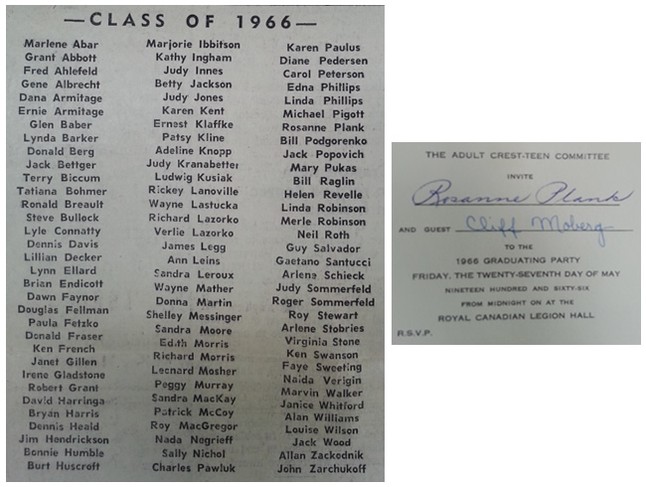 —CLASS OF 1966—
Marlene Abar
Grant Abbott
Fred Ahlefeld
Gene Albrecht
Dana Armitage
Ernie Armitage
Glen Baber
Lynda Barker
Donald Berg
Jack Bettger
Terry Biccum
Tatiana Bohmer
Ronald Breault
Steve Bullock
Lyle Connatty
Dennis Davis
Lillian Decker
Lynn Ellard
Brian Endicott
Dawn Faynor
Douglas Fellman
Paula Fetzko
Donald Fraser
Ken French
Janet Gillen
Irene Gladstone
Robert Grant
David Harringa
Bryan Harris
Dennis Heald
Jim Hendrickson
Bonnie Humble
Burt Huscroft
Marjorie Ibbitson
Kathy Ingham
Judy Innes
Betty Jackson
Judy Jones
Karen Kent
Ernest Klaffke
Patsy Kline
Adeline Knopp
Judy Kranabetter
Ludwig Kusiak
Rickey Lanoville
Wayne Lastucka
Richard Lazorko
Verlie Lazorko
James Legg
Ann Leins
Sandra Leroux
Wayne Mather
Donna Martin
Shelley Messinger
Sandra Moore
Edith Morris
Richard Morris
Leonard Mosher
Peggy Murray
Sandra MacKay
Patrick McCoy
Roy MacGregor
Nada Negrieff
Sally Nichol
Charles Pawluk
Karen Paulus
Diane Pedersen
Carol Peterson
Edna Phillips
Linda Phillips
Michael Pigott
Rosanne Plank
Bill Podgorenko
Jack Popovich
Mary Pukas
Bill Raglin
Helen Revelle
Linda Robinson
Merle Robinson
Neil Roth
Guy Salvador
Gaetano Santucci
Arlene Schieck
Judy Sommerfeld
Roger Sommerfeld
Roy Stewart
Arlene Stobries
Virginia Stone
Ken Swanson
Faye Sweeting
Naida Verigin
Marvin Walker
Janice Whitford
Alan Williams
Louise Wilson
Jack Wood
Allan Zackodnik
John Zarchukoff
THE ADULT CREST-TEEN COMMITTEE
INVITE
Rosanne Plank
AND GUEST Cliff Moberg
TO THE
1966 GRADUATING PARTY
FRIDAY, THE TWENTY-SEVENTH DAY OF MAY
NINETEEN HUNDRED AND SIXTY-SIX
FROM MIDNIGHT ON AT THE
ROYAL CANADIAN LEGION HALL
R.S.V.P.